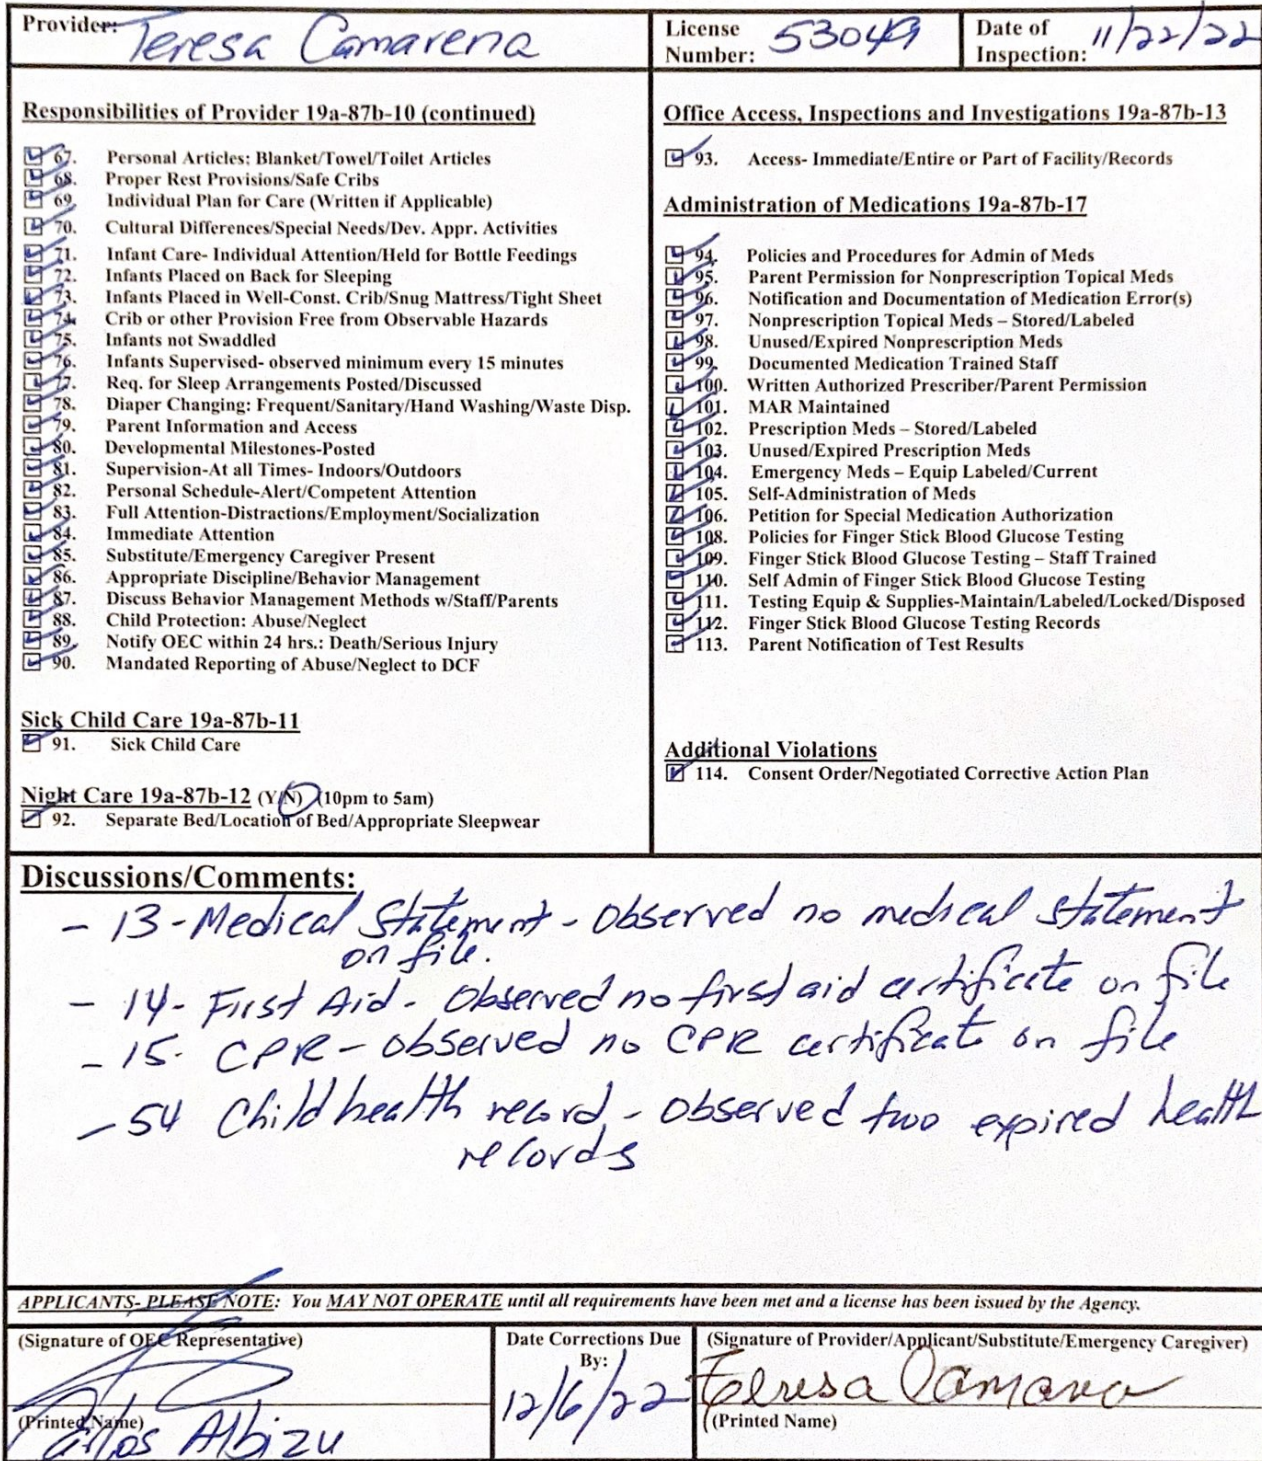 Provider: Teresa Camarena
License Number: 53049
Date of Inspection: 11/22/22
Responsibilities of Provider 19a-87b-10 (continued)
67. Personal Articles: Blanket/Towel/Toilet Articles
68. Proper Rest Provisions/Safe Cribs
69. Individual Plan for Care (Written if Applicable)
70. Cultural Differences/Special Needs/Dev. Appr. Activities
71. Infant Care- Individual Attention/Held for Bottle Feedings
72. Infants Placed on Back for Sleeping
73. Infants Placed in Well-Const. Crib/Snug Mattress/Tight Sheet
74. Crib or other Provision Free from Observable Hazards
75. Infants not Swaddled
76. Infants Supervised- observed minimum every 15 minutes
77. Req. for Sleep Arrangements Posted/Discussed
78. Diaper Changing: Frequent/Sanitary/Hand Washing/Waste Disp.
79. Parent Information and Access
80. Developmental Milestones-Posted
81. Supervision-At all Times- Indoors/Outdoors
82. Personal Schedule-Alert/Competent Attention
83. Full Attention-Distractions/Employment/Socialization
84. Immediate Attention
85. Substitute/Emergency Caregiver Present
86. Appropriate Discipline/Behavior Management
87. Discuss Behavior Management Methods w/Staff/Parents
88. Child Protection: Abuse/Neglect
89. Notify OEC within 24 hrs.: Death/Serious Injury
90. Mandated Reporting of Abuse/Neglect to DCF
Sick Child Care 19a-87b-11
91. Sick Child Care
Night Care 19a-87b-12 (Y/N) (10pm to 5am)
92. Separate Bed/Location of Bed/Appropriate Sleepwear
Office Access, Inspections and Investigations 19a-87b-13
93. Access- Immediate/Entire or Part of Facility/Records
Administration of Medications 19a-87b-17
94. Policies and Procedures for Admin of Meds
95. Parent Permission for Nonprescription Topical Meds
96. Notification and Documentation of Medication Error(s)
97. Nonprescription Topical Meds – Stored/Labeled
98. Unused/Expired Nonprescription Meds
99. Documented Medication Trained Staff
100. Written Authorized Prescriber/Parent Permission
101. MAR Maintained
102. Prescription Meds – Stored/Labeled
103. Unused/Expired Prescription Meds
104. Emergency Meds – Equip Labeled/Current
105. Self-Administration of Meds
106. Petition for Special Medication Authorization
108. Policies for Finger Stick Blood Glucose Testing
109. Finger Stick Blood Glucose Testing – Staff Trained
110. Self Admin of Finger Stick Blood Glucose Testing
111. Testing Equip & Supplies-Maintain/Labeled/Locked/Disposed
112. Finger Stick Blood Glucose Testing Records
113. Parent Notification of Test Results
Additional Violations
114. Consent Order/Negotiated Corrective Action Plan
Discussions/Comments:
- 13 - Medical Statement - Observed no medical statement
on file.
- 14- First Aid - Observed no first aid certificate on file
- 15- CPR - observed no CPR certificate on file
- 54 Child health record - Observed two expired health
records
APPLICANTS- PLEASE NOTE: You MAY NOT OPERATE until all requirements have been met and a license has been issued by the Agency.
(Signature of OEC Representative)
(Printed Name)
Carlos Albizu
Date Corrections Due
By:
12/6/22
(Signature of Provider/Applicant/Substitute/Emergency Caregiver)
Teresa Camarena
(Printed Name)